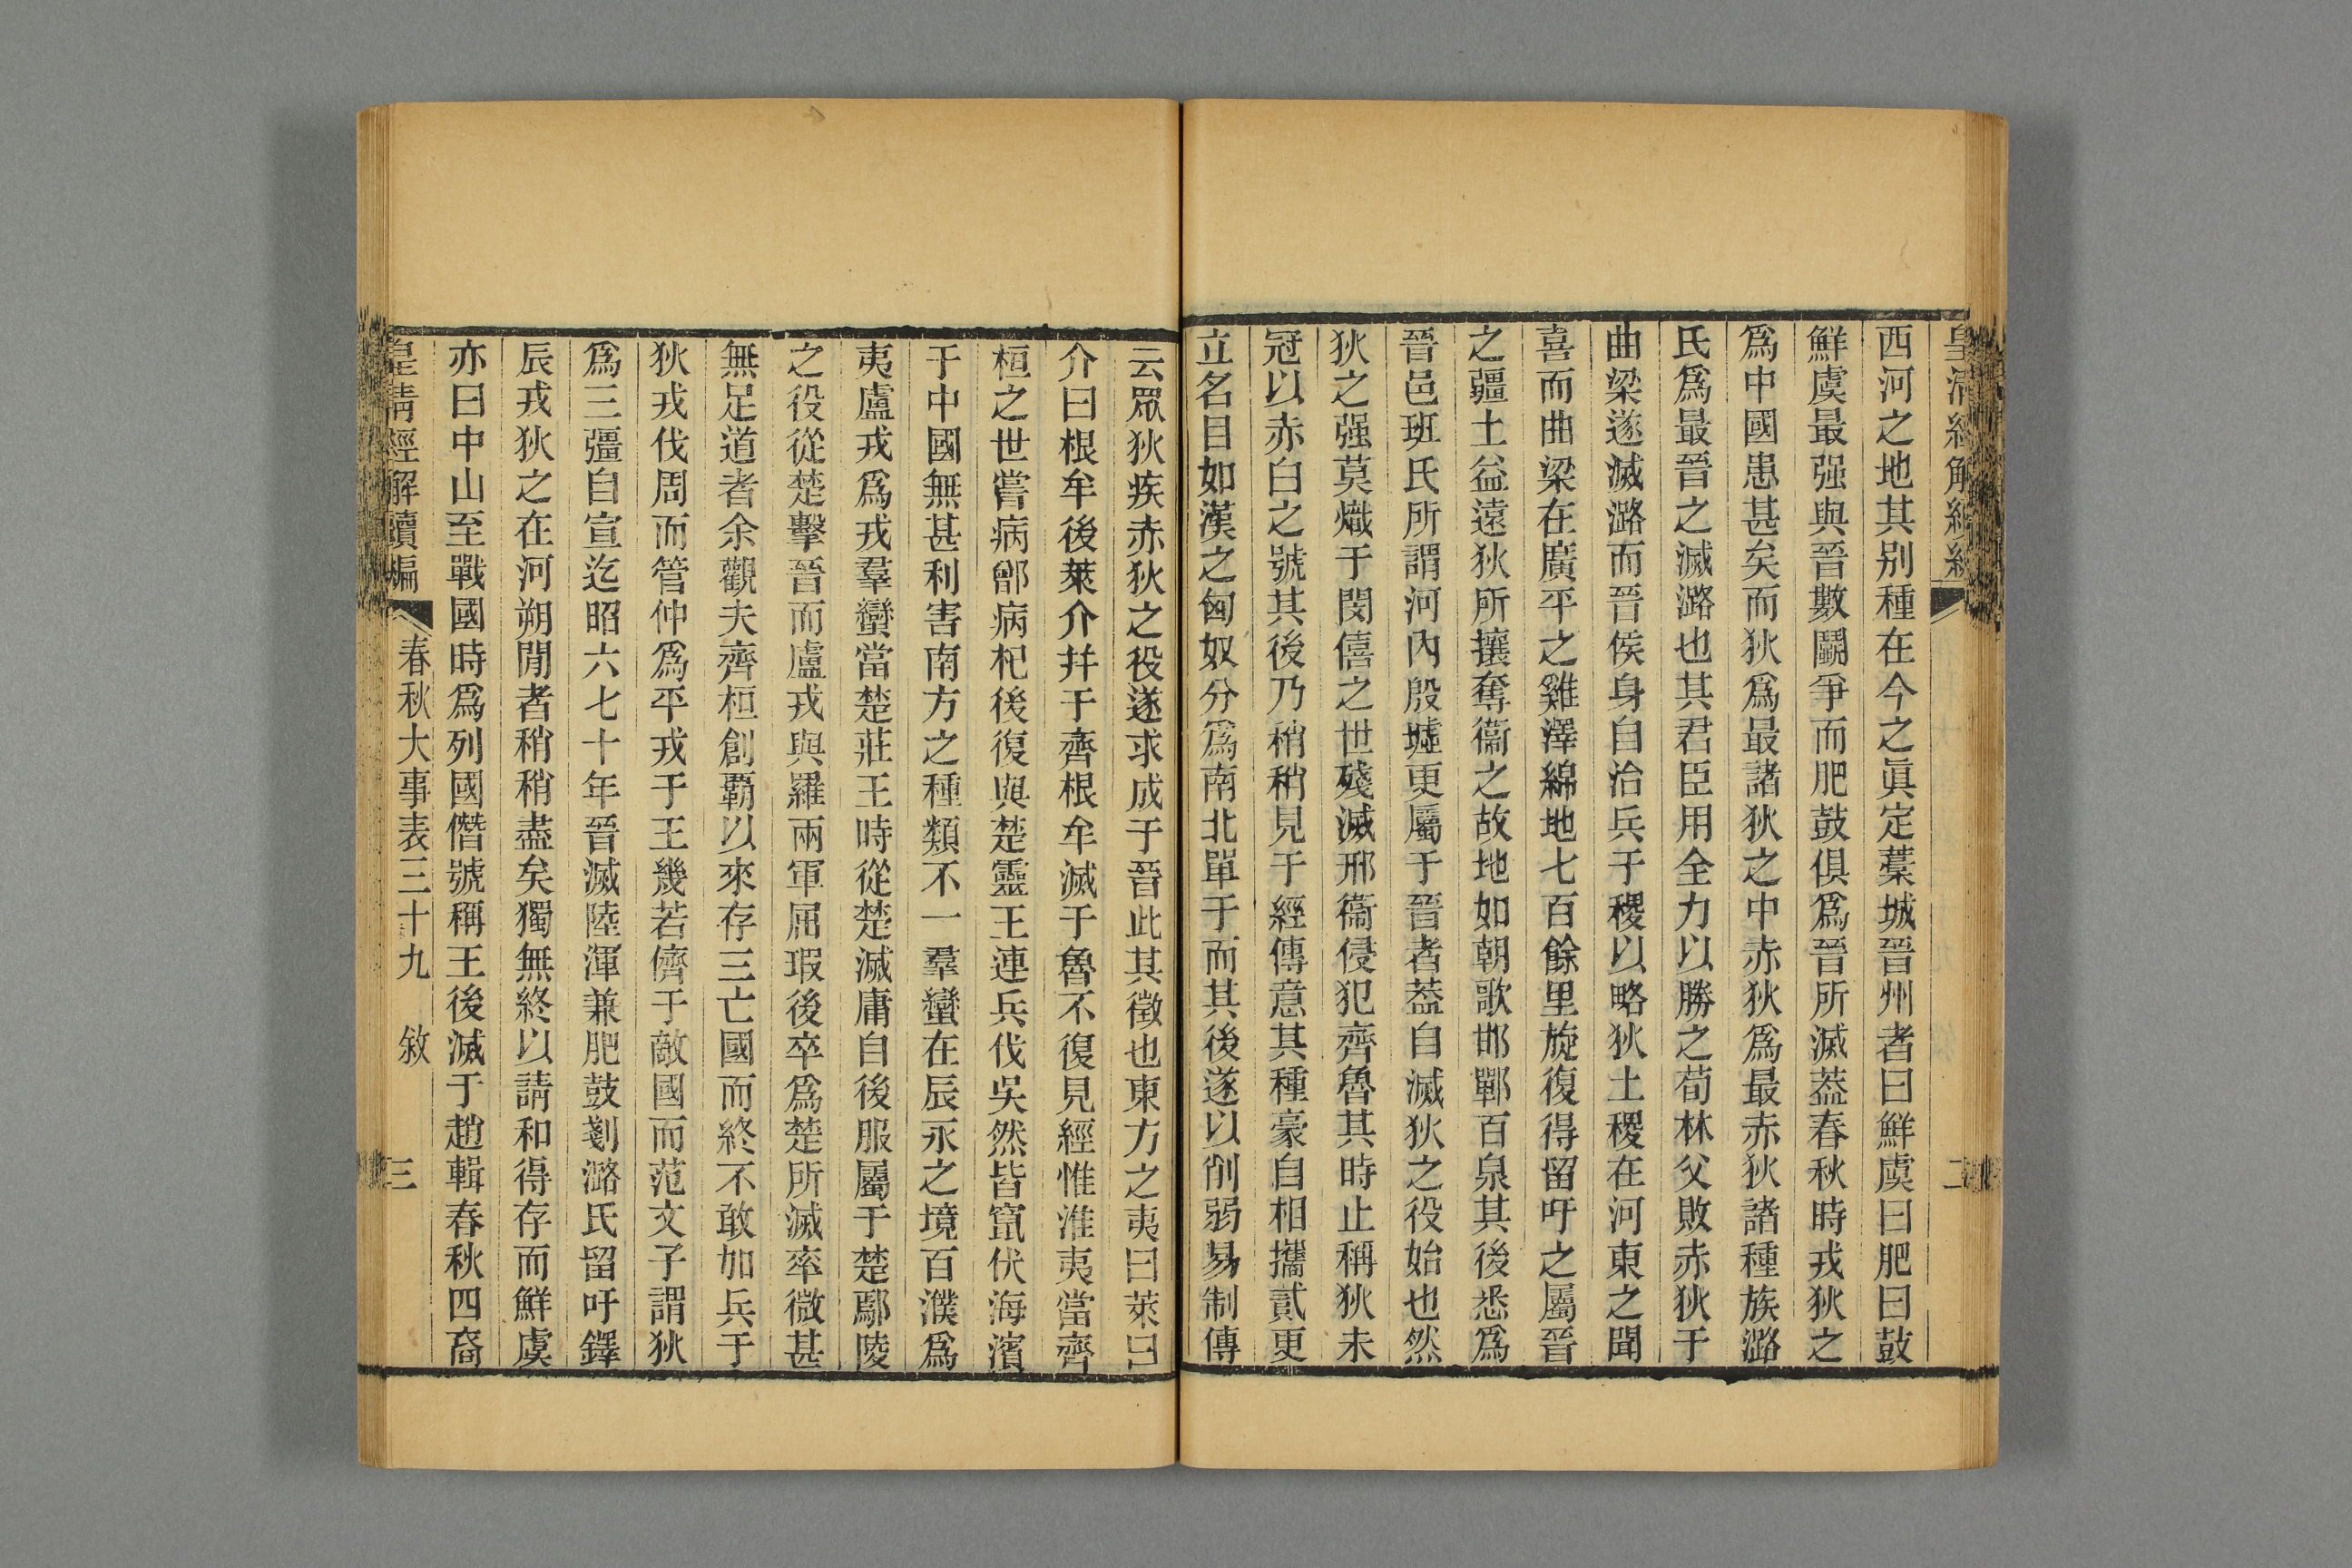 皇清經解續
二
西河之地其别種在今之眞定藁城晉州者曰鮮虞曰肥曰鼓
鮮虞最强與晉數鬬爭而肥鼓俱爲晉所滅葢春秋時戎狄之
爲中國患甚矣而狄爲最諸狄之中赤狄爲最赤狄諸種族潞
氏爲最晉之滅潞也其君臣用全力以勝之荀林父敗赤狄于
曲梁遂滅潞而晉侯身自治兵于稷以略狄土稷在河東之聞
喜而曲梁在廣平之雞澤綿地七百餘里旋復得留吁之屬晉
之疆土益遠狄所攘奪衞之故地如朝歌邯鄲百泉其後悉爲
晉邑班氏所謂河內殷墟更屬于晉者葢自滅狄之役始也然
狄之强莫熾于閔僖之世殘滅邢衞侵犯齊魯其時止稱狄未
冠以赤白之號其後乃稍稍見于經傳意其種豪自相攜貳更
立名目如漢之匈奴分爲南北單于而其後遂以削弱易制傳
云眾狄疾赤狄之役遂求成于晉此其徵也東方之夷曰萊曰
介曰根牟後萊介幷于齊根牟滅于魯不復見經惟淮夷當齊
桓之世嘗病鄫病杞後復與楚靈王連兵伐吳然皆竄伏海濱
于中國無甚利害南方之種類不一羣蠻在辰永之境百濮爲
夷盧戎爲戎羣蠻當楚莊王時從楚滅庸自後服屬于楚鄢陵
之役從楚擊晉而盧戎與羅兩軍屈瑕後卒爲楚所滅率微甚
無足道者余觀夫齊桓創覇以來存三亡國而終不敢加兵于
狄戎伐周而管仲爲平戎于王幾若儕于敵國而范文子謂狄
爲三彊自宣迄昭六七十年晉滅陸渾兼肥鼓剗潞氏留吁鐸
辰戎狄之在河朔閒者稍稍盡矣獨無終以請和得存而鮮虞
亦曰中山至戰國時爲列國僭號稱王後滅于趙輯春秋四裔
皇清經解續編
春秋大事表三十九 敘
三